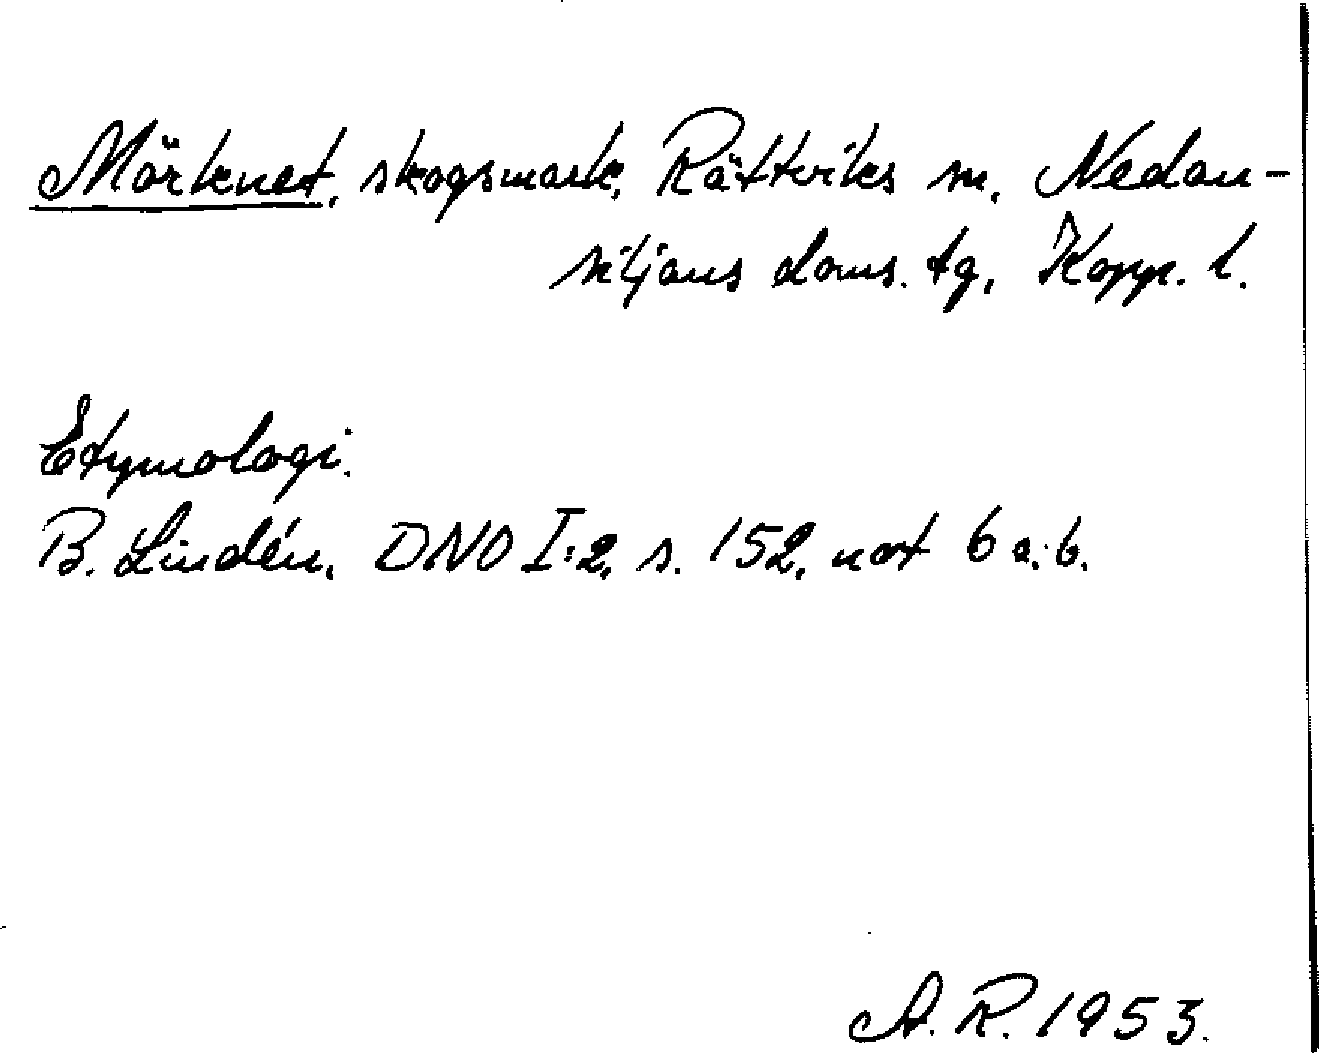 Mörknet, skogsmark, Rättviks sn, Nedan-
siljans doms. tg, Kopp. l.
Etymologi.
B. Lindén, DNO I:2, s. 152, not 6 a.b.
A. R. 1953.